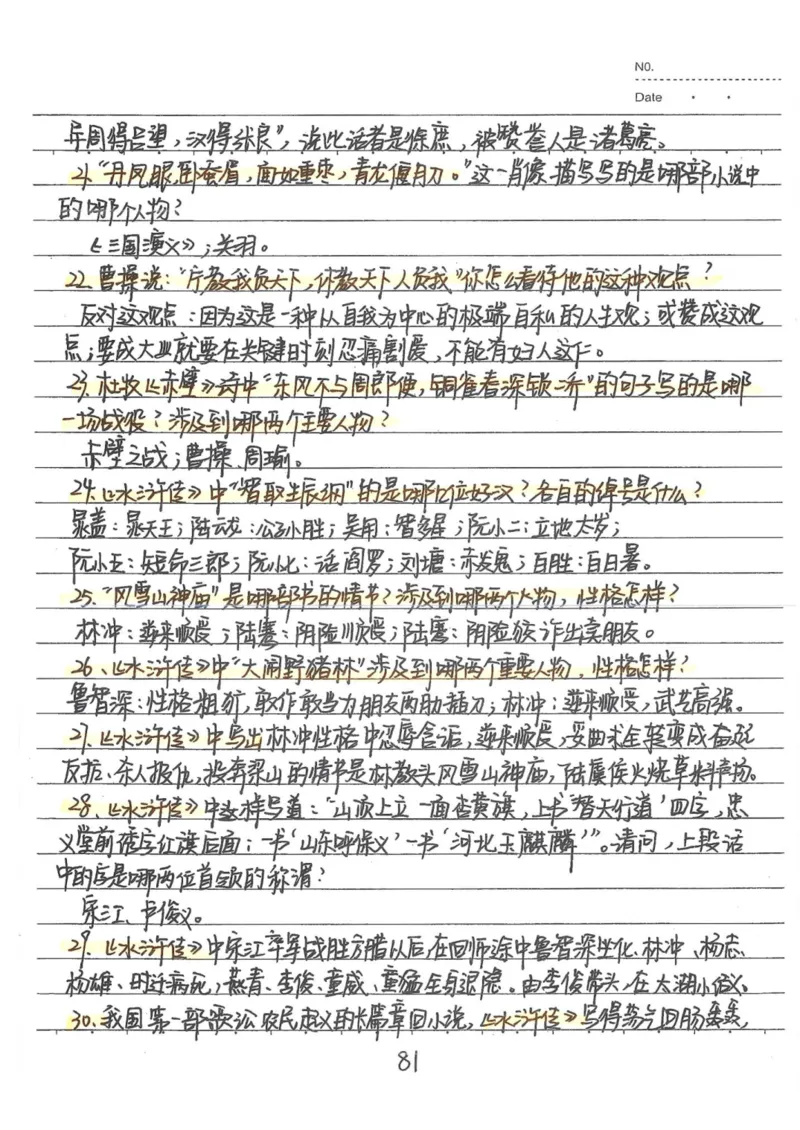 N0.
Date
异周得吕望，汉得张良”，说此话者是徐庶，被赞誉人是诸葛亮。
21.“丹凤眼，卧蚕眉，面如重枣，青龙偃月刀。”这一肖像描写写的是哪部小说中
的哪个人物？
《三国演义》；关羽。
22.曹操说：“宁教我负天下，休教天下人负我”你怎么看待他的这种观点？
反对这观点：因为这是一种从自我为中心的极端自私的人生观；或赞成这观
点；要成大业就要在关键时刻忍痛割爱，不能有妇人这仁。
23.杜牧《赤壁》诗中“东风不与周郎便，铜雀春深锁二乔”的句子写的是哪
一场战役？涉及到哪两个主要人物？
赤壁之战；曹操、周瑜。
24.《水浒传》中“智取生辰纲”的是哪几位好汉？各自的绰号是什么？
晁盖：晁天王；陆云龙：公孙小胜；吴用：智多星；阮小二：立地太岁；
阮小五：短命三郎；阮小七：活阎罗；刘塘：赤发鬼；百胜：百日暑。
25.“风雪山神庙”是哪部书的情节？涉及到哪两个人物，性格怎样？
林冲：逆来顺受；陆骞：阴险川顺受；陆骞：阴险狡诈出卖朋友。
26、《水浒传》中“大闹野猪林”涉及到哪两个重要人物，性格怎样？
鲁智深：性格粗犷，敢作敢当为朋友两肋插刀；林冲：逆来顺受，武艺高强。
27、《水浒传》中写出林冲性格中忍辱含诟，逆来顺受，委曲求全转变成奋起
反抗、杀人报仇，投奔梁山的情节是林教头风雪山神庙，陆虞侯火烧草料场。
28、《水浒传》中这样写道：“山顶上立一面杏黄旗，上书‘替天行道’四字，忠
义堂前绣字红旗后面：一书‘山东呼保义’一书‘河北玉麒麟’”。请问，上段话
中的后是哪两位首领的称谓？
宋江、卢俊义。
29、《水浒传》中宋江率军战胜方腊以后，在回师途中鲁智深坐化、林冲、杨志、
杨雄、时迁病死，燕青、李俊、童威、童猛全身退隐。由李俊带头，在太湖小结义。
30、我国第一部歌讼农民起义的长篇章回小说，《水浒传》写得荡气回肠轰轰，
81